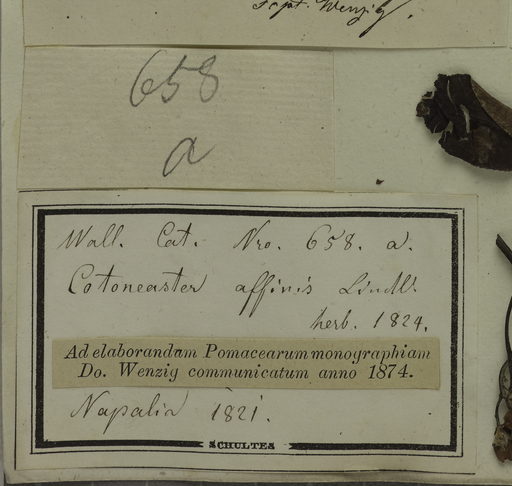 Scpt. Wenzig.
658
a
Wall. Cat. Nro. 658. a.
Cotoneaster affinis Lindl.
herb. 1824.
Ad elaborandam Pomacearum monographiam
Do. Wenzig communicatum anno 1874.
Napalia 1821.
SCHULTES